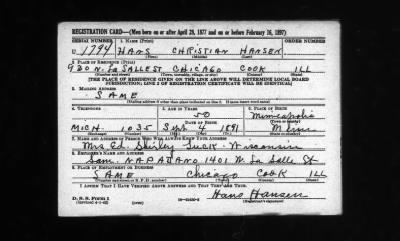 REGISTRATION CARD—(Men born on or after April 28, 1877 and on or before February 16, 1897)
SERIAL NUMBER 1. NAME (Print) ORDER NUMBER
U 1794 HANS CHRISTIAN HANSEN
(First) (Middle) (Last)
2. PLACE OF RESIDENCE (Print)
920 N. La SALLE ST CHICAGO COOK ILL
(Number and street) (Town, township, village, or city) (County) (State)
[THE PLACE OF RESIDENCE GIVEN ON THE LINE ABOVE WILL DETERMINE LOCAL BOARD
JURISDICTION; LINE 2 OF REGISTRATION CERTIFICATE WILL BE IDENTICAL]
3. MAILING ADDRESS
SAME
[Mailing address if other than place indicated on line 2. If same insert word same]
4. TELEPHONE 5. AGE IN YEARS 6. PLACE OF BIRTH
50 Minneapolis
DATE OF BIRTH (Town or county)
MICH. 1035 Sept 4 1891 Minn
7. NAME AND ADDRESS OF PERSON WHO WILL ALWAYS KNOW YOUR ADDRESS
Mrs Ed. Shirley Wisconsin
8. EMPLOYER'S NAME AND ADDRESS
Sam. 1401 N. La Salle St
9. PLACE OF EMPLOYMENT OR BUSINESS
SAME Chicago COOK ILL
(Number and street or R. F. D. number) (Town) (County) (State)
I AFFIRM THAT I HAVE VERIFIED ABOVE ANSWERS AND THAT THEY ARE TRUE.
D. S. S. Form 1 Hans Hansen
(Revised 4-1-42) (Registrant's signature)